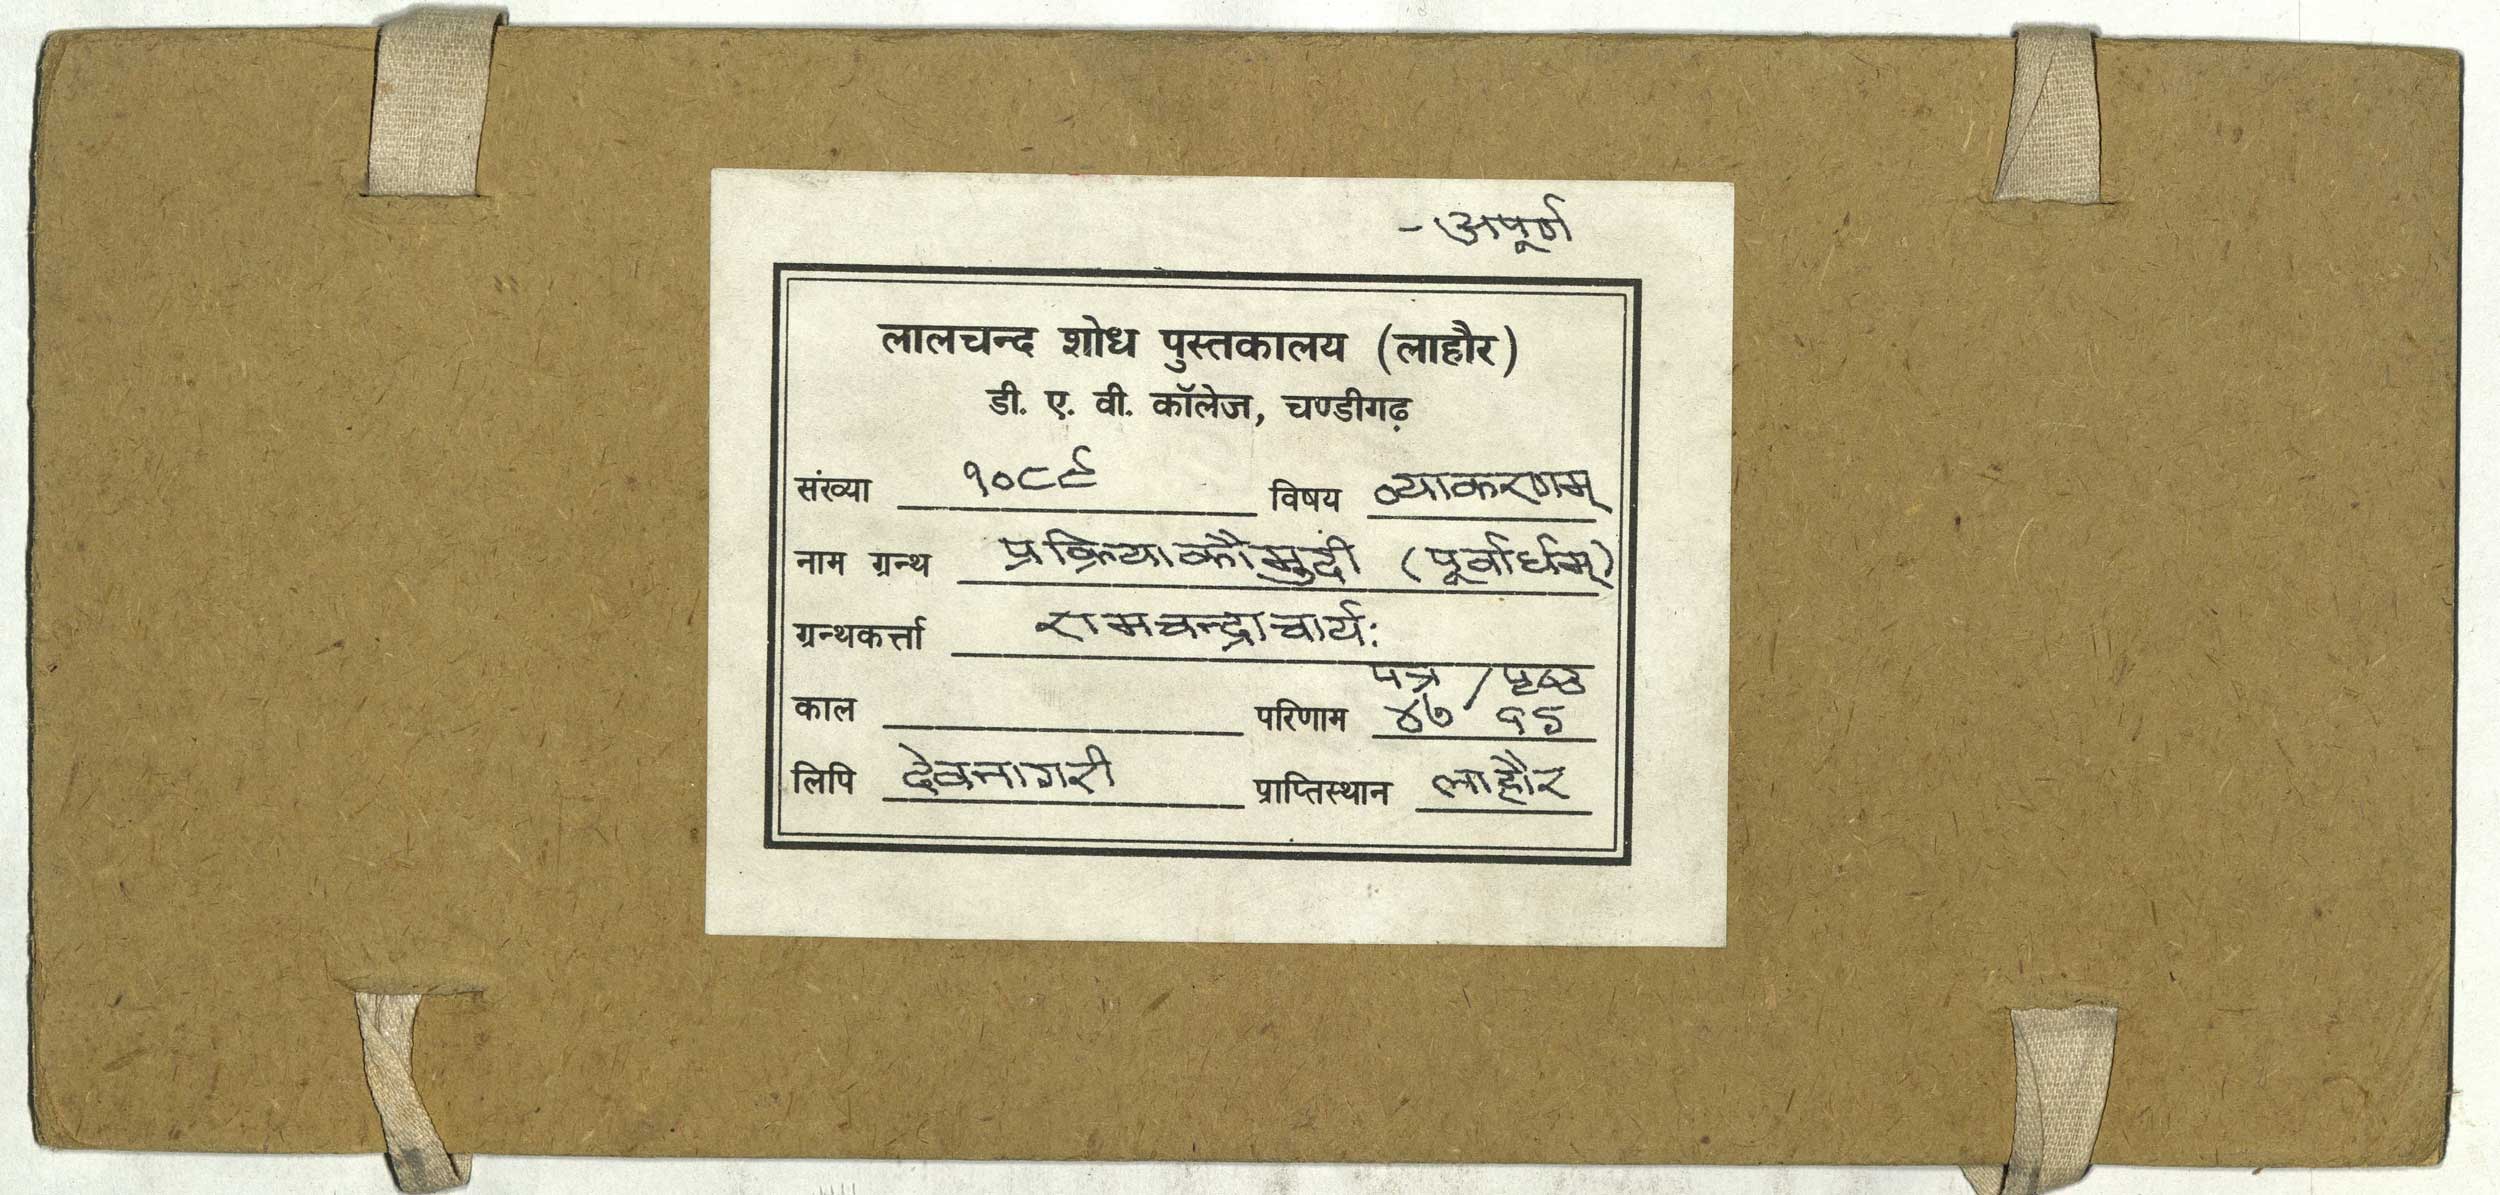 - अपूर्ण
लालचन्द शोध पुस्तकालय (लाहौर)
डी. ए. वी. कॉलेज, चण्डीगढ़
संख्या १०८९ विषय व्याकरणम्
नाम ग्रन्थ प्रक्रियाकौमुदी (पूर्वार्धम्)
ग्रन्थकर्त्ता रामचन्द्राचार्यः
पत्र / पृष्ठ
काल परिणाम ४७
लिपि देवनागरी प्राप्तिस्थान लाहौर